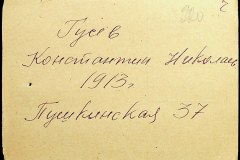 Гусев
Константин Николаев
1913 г
Пушкинская 37